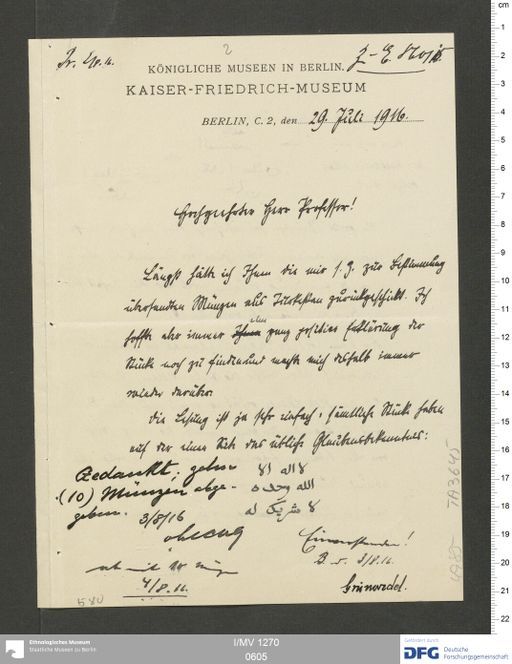 2
KÖNIGLICHE MUSEEN IN BERLIN.
KAISER-FRIEDRICH-MUSEUM
BERLIN, C. 2, den 29. Juli 1916.
Hochgeehrter Herr Professor!
Längst hätte ich Ihnen die mir s. Z. zur Bestimmung
übersandten Münzen aus Turkestan zurückgeschickt. Ich
hoffte aber immer eine ganz präzise Erklärung der
Stücke noch zu finden und machte mich deshalb immer
wieder darüber.
Die Lesung ist ja sehr einfach, sämtliche Stücke haben
auf der einen Seite das übliche Glaubensbekenntnis:
لا اله الا
الله وحده
لا شريك له
Gedankt; gebe
(10) Münzen abge-
geben.
3/8/16
Einverstanden!
B. 3/8.16.
Grünwedel.
4/8.16.
TA 3645
cm
1
2
3
4
5
6
7
8
9
10
11
12
13
14
15
16
17
18
19
20
21
22
Ethnologisches Museum
Staatliche Museen zu Berlin
I/MV 1270
0605
Gefördert durch
DFG Deutsche
Forschungsgemeinschaft